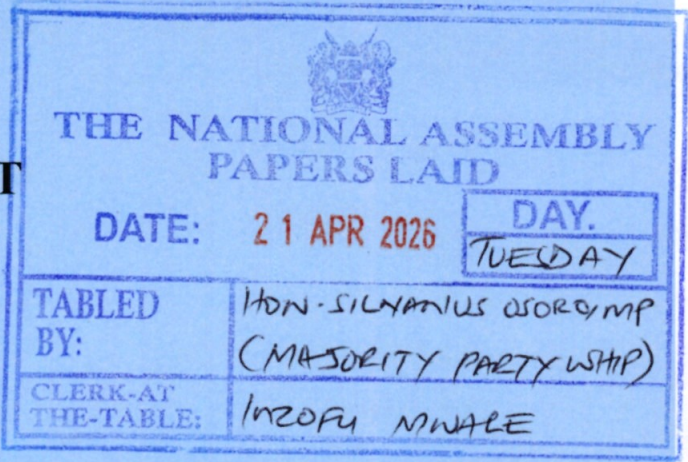 T
THE NATIONAL ASSEMBLY
PAPERS LAID
DATE: 21 APR 2026
DAY.
TUESDAY
TABLED BY:
HON. SILVANIUS OSORO, MP
(MAJORITY PARTY WHIP)
CLERK-AT
THE-TABLE:
INZOFU MWALE